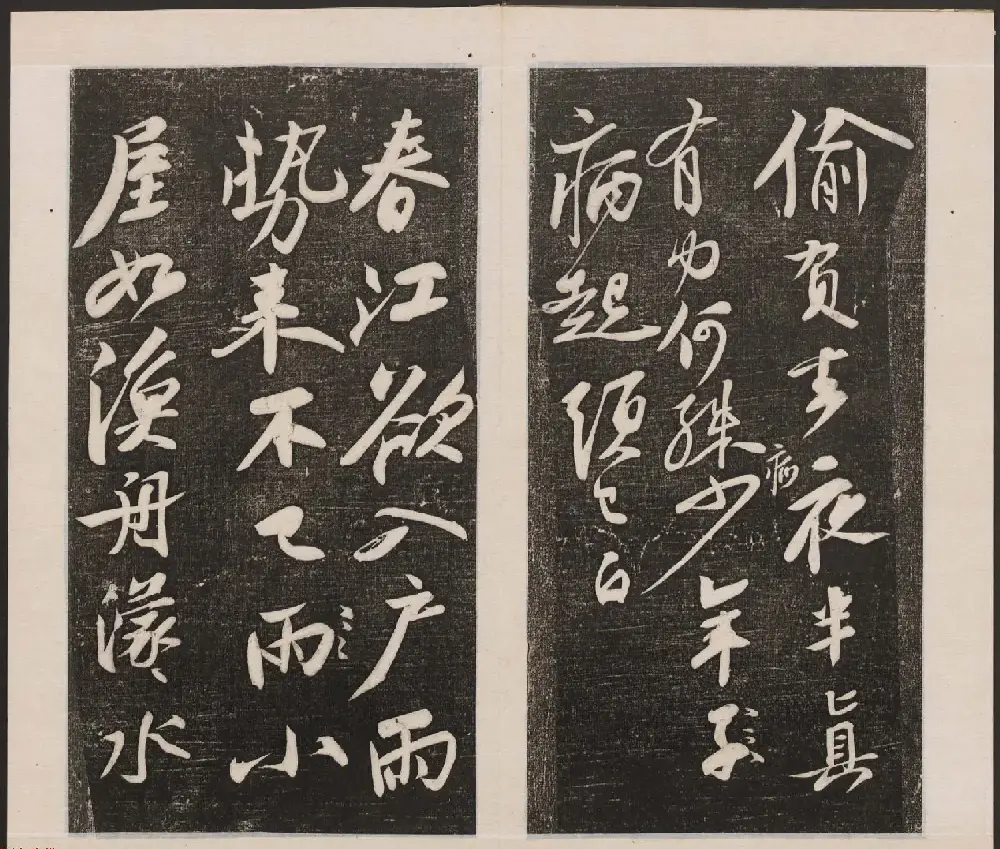 偷負去夜半真
有力何殊病少年子
病起須已白
春江欲入戶雨
勢來不已雨小
屋如漁舟濛〻水